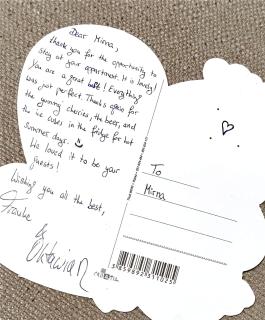 Dear Mirna,
thank you for the opportunity to
stay at your apartment. It is lovely!
You are a great host! Everything
was just perfect. Thanks again for
the yummy cherries, the beer, and
the ice cubes in the fridge for hot
summer days.
We loved it to be your
guests!
Wishing you all the best,
&
Oktawian
To
Mirna